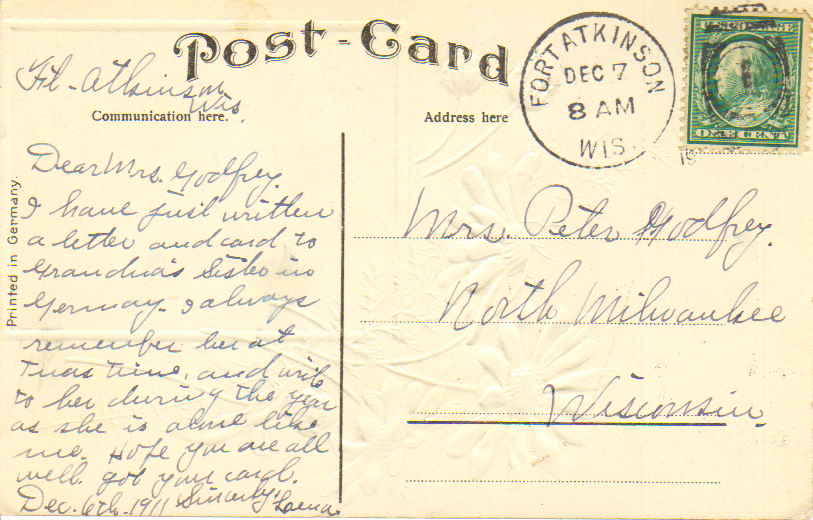 Post-Card
Ft-Atkinson
Wis.
Communication here.
Address here
FORT ATKINSON
DEC 7
8 AM
WIS.
ONE CENT
Printed in Germany.
Dear Mrs. Godfrey.
I have just written
a letter and card to
Grandma's Sister in
Germany. I always
remember her at
Xmas time, and write
to her during the year
as she is alone like
me. Hope you are all
well. got your card.
Dec. 6th-1911 Sincerely,
Mrs. Peter Godfrey.
North Milwaukee
Wisconsin.